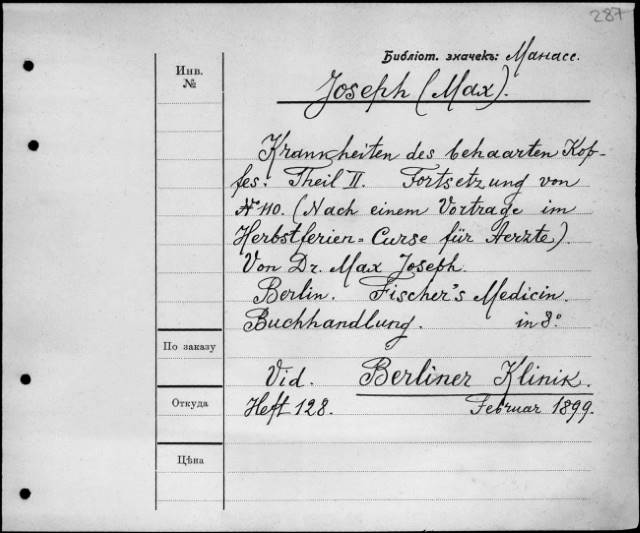 287
Библіот. значекъ: Манасс.
Инв.
№
Joseph (Max).
Krankheiten des behaarten Kop-
fes: Theil II. Fortsetzung von
№ 110. (Nach einem Vortrage im
Herbstferien=Curse für Aerzte).
Von Dr. Max Joseph.
Berlin. Fischer's Medicin.
Buchhandlung. in 8º.
По заказу
Vid. Berliner Klinik.
Откуда
Heft 128. Februar 1899.
Цѣна